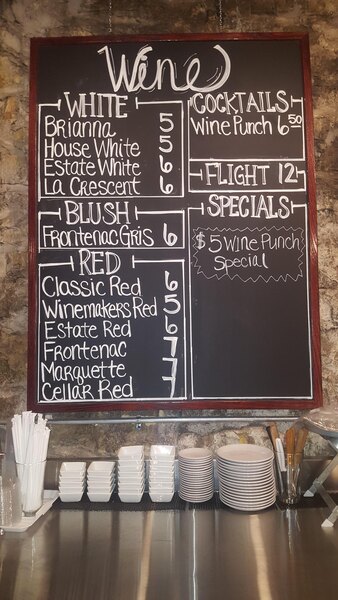 Wine
WHITE
Brianna 5
House White 5
Estate White 6
La Crescent 6
BLUSH
Frontenac Gris 6
RED
Classic Red 6
Winemakers Red 5
Estate Red 6
Frontenac 7
Marquette 7
Cellar Red 7
COCKTAILS
Wine Punch 6 50
FLIGHT 12
SPECIALS
$5 Wine Punch
Special